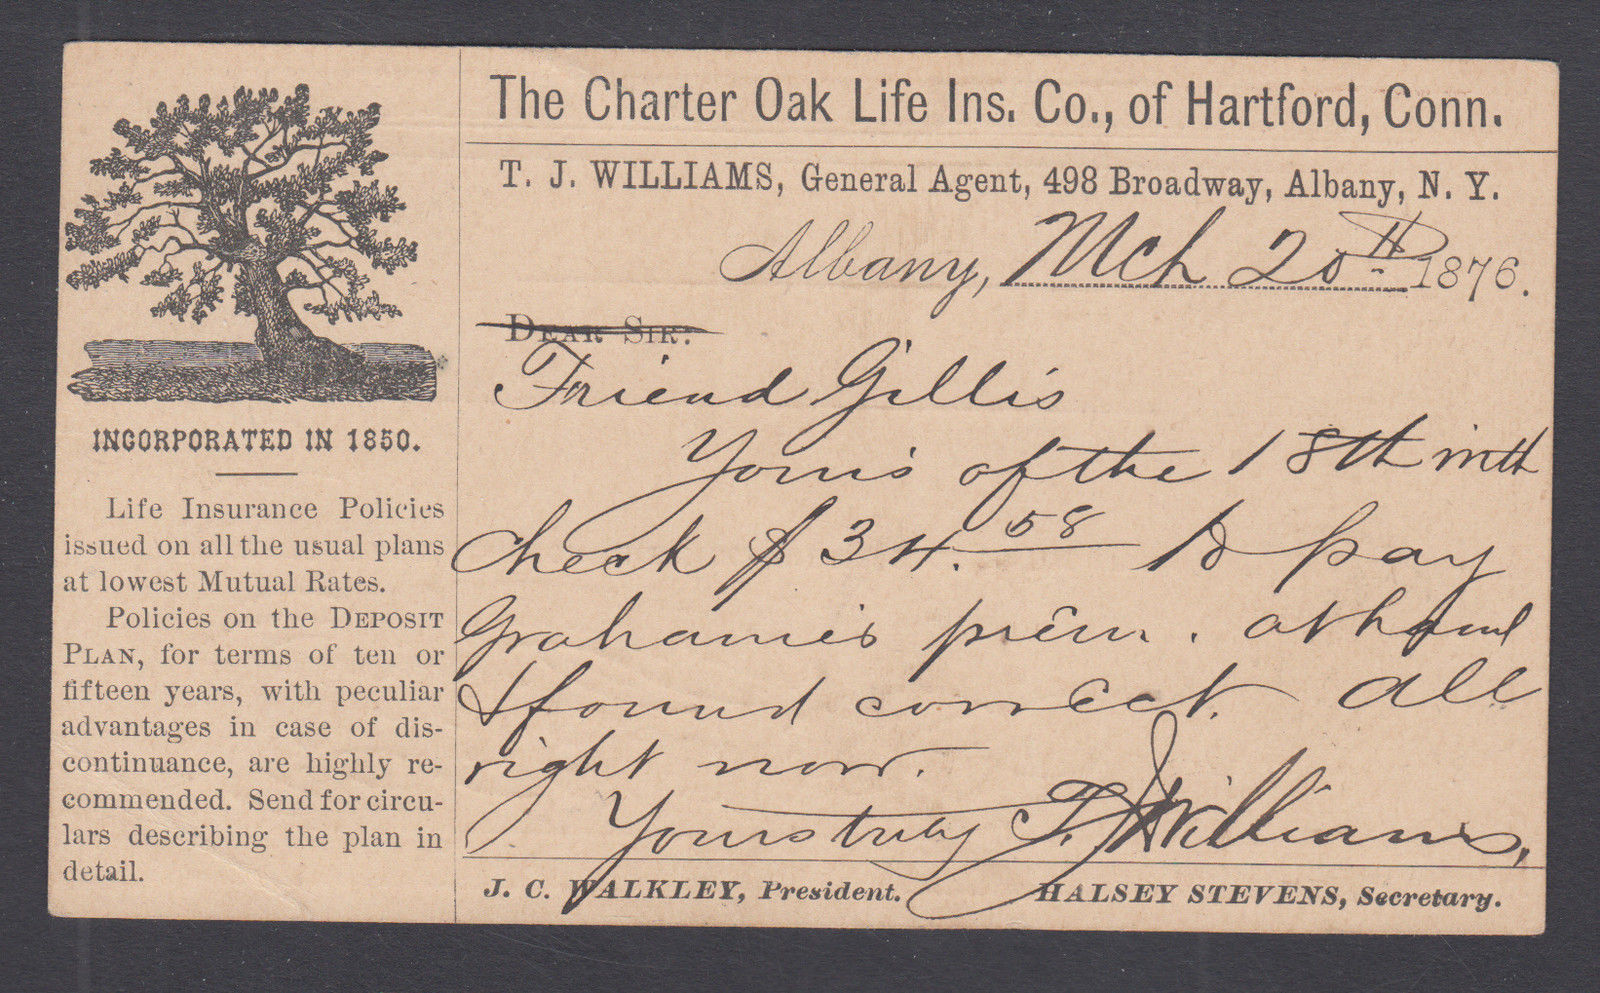 The Charter Oak Life Ins. Co., of Hartford, Conn.
T. J. WILLIAMS, General Agent, 498 Broadway, Albany, N. Y.
Albany, Mch 20th 1876.
DEAR SIR:
Friend Gillis
Yours of the 18th with
Check $34.58 to pay
Grahames prem. at hand
& found correct. All
right now.
Yours truly T. J. Williams,
J. C. WALKLEY, President.
HALSEY STEVENS, Secretary.
INCORPORATED IN 1850.
Life Insurance Policies
issued on all the usual plans
at lowest Mutual Rates.
Policies on the DEPOSIT
PLAN, for terms of ten or
fifteen years, with peculiar
advantages in case of dis-
continuance, are highly re-
commended. Send for circu-
lars describing the plan in
detail.